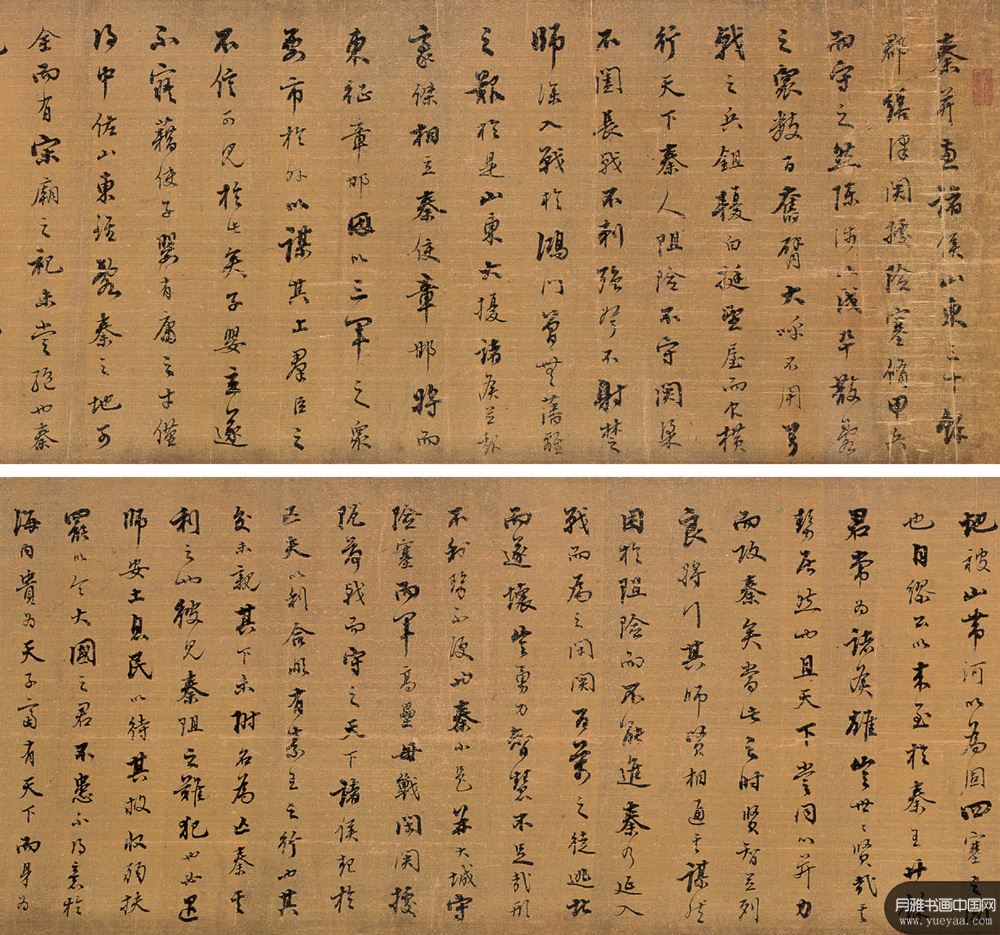 秦并兼諸侯山東三十餘
郡繕津関據險塞脩甲兵
而守之然陳涉以戍卒散亂
之衆數百奮臂大呼不用弓
戟之兵鉏耰白梃望屋而食橫
行天下秦人阻險不守関梁
不闔長戟不刺强弩不射楚
師深入戰於鴻門曾無藩籬
之艱於是山東大擾諸侯並起
豪傑相立秦使章邯將而
東征章邯因以三軍之衆
要市於外以謀其上羣臣之
不信可見於此矣子嬰立遂
不寤藉使子嬰有庸之才僅
得中佐山東雖亂秦之地可
全而有宗廟之祀未當絕也秦
地被山帶河以為固四塞之國
也自繆公以來至於秦王廿
君常為諸侯雄豈世〻賢哉其
勢居然也且天下嘗同心并力
而攻秦矣當此之時賢智並列
良將行其師賢相通其謀然
困於阻險而不能進秦乃延入
戰而為之開関百萬之徒逃北
而遂壞豈勇力智慧不足哉形
不利勢不便也秦小邑并大城守
險塞而軍高壘毋戰閉関據
阨荷戟而守之天下諸侯起於
匹夫以利合非有素王之行也其
交未親其下未附名為亡秦其
利之也彼見秦阻之難犯也必退
師安土息民以待其敝收弱扶
罷以令大國之君不患不得意於
海內貴為天子富有天下而身為
月雅书画中国网
www.yueyaa.com